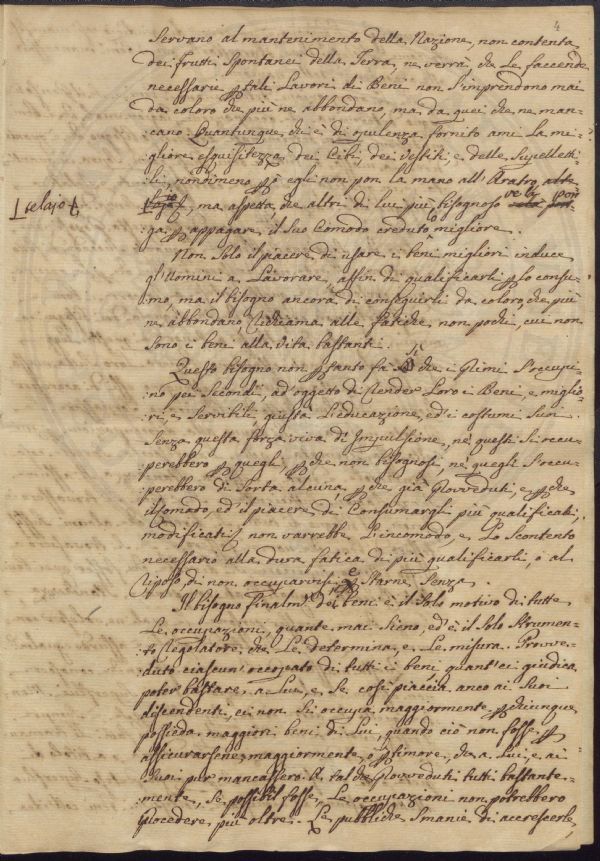 4
Servano al mantenimento della Nazione, non contenta
dei frutti Spontanei della Terra, ne verrà che Le faccende
necessarie p tali Lavori di Beni non S'imprendono mai
da coloro che più ne abbondano, ma da quei che ne man-
cano. Quantunque chi è di opulenza fornito ami La mi-
gliore esquisitezza dei Cibi, dei Vestiti, e delle Supellett-
ili, nondimeno p egli non pon la mano all'Aratro,
telajo
ma aspetta, che altri di lui più bisognoso ve la pon-
ga p appagare il Suo Comodo creduto migliore.
Non Solo il piacere di usare i beni migliori induce
gl'Uomini a Lavorare, affin di qualificarli p lo consu-
mo, ma il bisogno ancora di conseguirli da coloro, che più
ne abbondano richiama alle fatiche non pochi, cui non
Sono i beni alla vita bastanti.
Questo bisogno non p tanto fa Sì che i Primi S'occupi-
no pei Secondi, ad oggetto di render Loro i Beni, e miglio-
ri, e Servibili giusta L'educazione, ed i costumi Suoi.
Senza questa forza viva d'Impulsione, nè questi Si occu-
perebbero p quegli, p che non bisognosi, nè quegli S'occu-
perebbero di Sorta alcuna, p che già provveduti, e p che
il Comodo, ed il piacere di Consumargli più qualificati,
modificati non varrebbe L'incomodo, e Lo Scontento
necessario alla dura fatica di più qualificarli, o al
riposo di non occuparvisi e Starne Senza.
Il bisogno finalmte dei beni è il Solo motivo di tutte
Le occupazioni, quante mai Sieno, ed è il Solo Strumen-
to regolatore, che Le determina, e Le misura. Provve-
duto ciascun'occupato di tutti i beni quant'ei giudica
poter bastare a Lui, e Se così piaccia anco ai Suoi
discendenti, ei non Si occupa maggiormente p chiunque
possieda maggiori beni di Lui, quando ciò non fosse p
assicurarsene maggiormente, o p timore, che a Lui, e ai
Suoi pur mancassero. A tal che provveduti tutti bastante-
mente, Se possibil fosse, Le occupazioni non potrebbero
procedere più oltre. Le pubbliche Smanie di accrescerle,